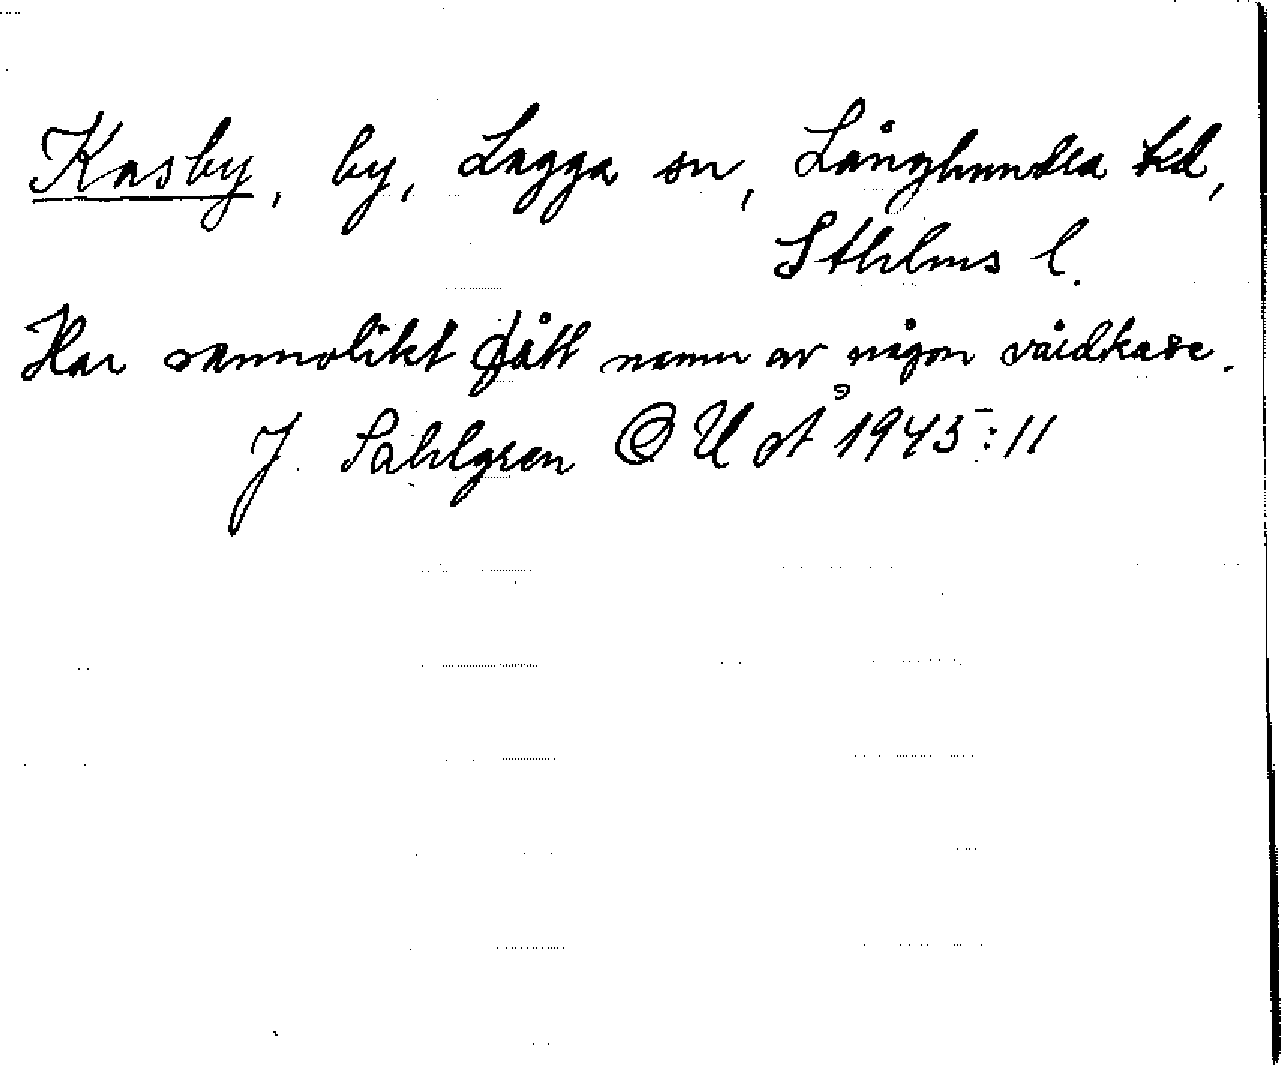 Kasby, by, Lagga sn, Långhundra hd,
Sthlms l.
Har sannolikt fått namn av någon vårdkase.
J. Sahlgren OUÅ 1945:11